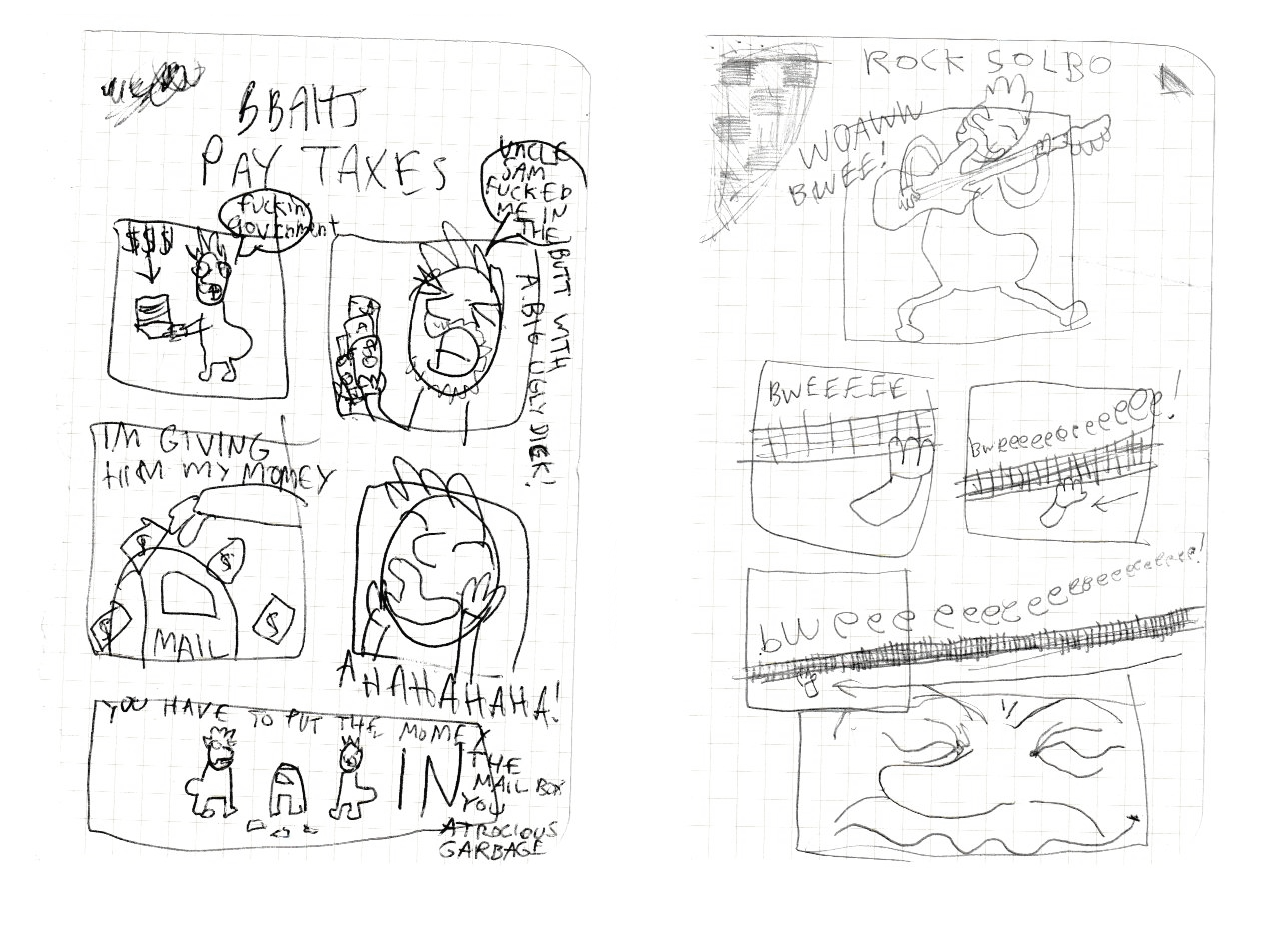 BBAHJ
PAY TAXES
$$$
fuckin
government
UNCLE
SAM
FUCKED
ME IN
THE
BUTT WITH
A BIG UGLY DICK!
I'M GIVING
HIM MY MONEY
$
$
$
$
MAIL
AHAHAHAHA!
YOU HAVE TO PUT THE MONEY
IN
THE
MAIL BOX
YOU
ATROCIOUS
GARBAGE
ROCK SOLBO
WOAWW
BWEE!
BWEEEEEE
Bweeeeeeeeeeeee!
bweeeeeeeeeeeeeeeeeeeee!